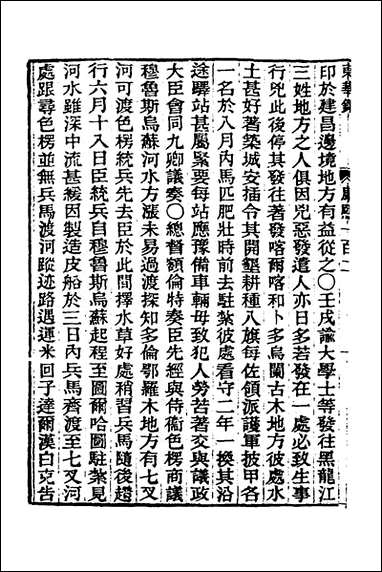 東華錄 康熙一百二
印於建昌邊境地方有益從之〇壬戌諭大學士等發往黑龍江
三姓地方之人俱因兇惡發遣人亦日多若發在一處必致生事
行兇此後停其發往著發喀爾喀和卜多烏闌古木地方彼處水
土甚好著築城安插令其開墾耕種八旗每佐領派護軍披甲各
一名於八月內馬匹肥壯時前去駐紮彼處看守二年一換其沿
途驛站甚屬緊要每站應豫備車輛毋致犯人勞苦著交與議政
大臣會同九卿議奏〇總督額倫特奏臣先經與侍衞色楞商議
穆魯斯烏蘇河水方漲未易過渡探知多倫鄂羅木地方有七叉
河可渡色楞統兵先去臣於此間擇水草好處稍習兵馬隨後趲
行六月十八日臣統兵自穆魯斯烏蘇起程至圖爾哈圖駐紮見
河水雖深中流甚緩因製造皮船於三日內兵馬齊渡至七叉河
處跟尋色楞並無兵馬渡河蹤迹路遇運米回子達爾漢白克告